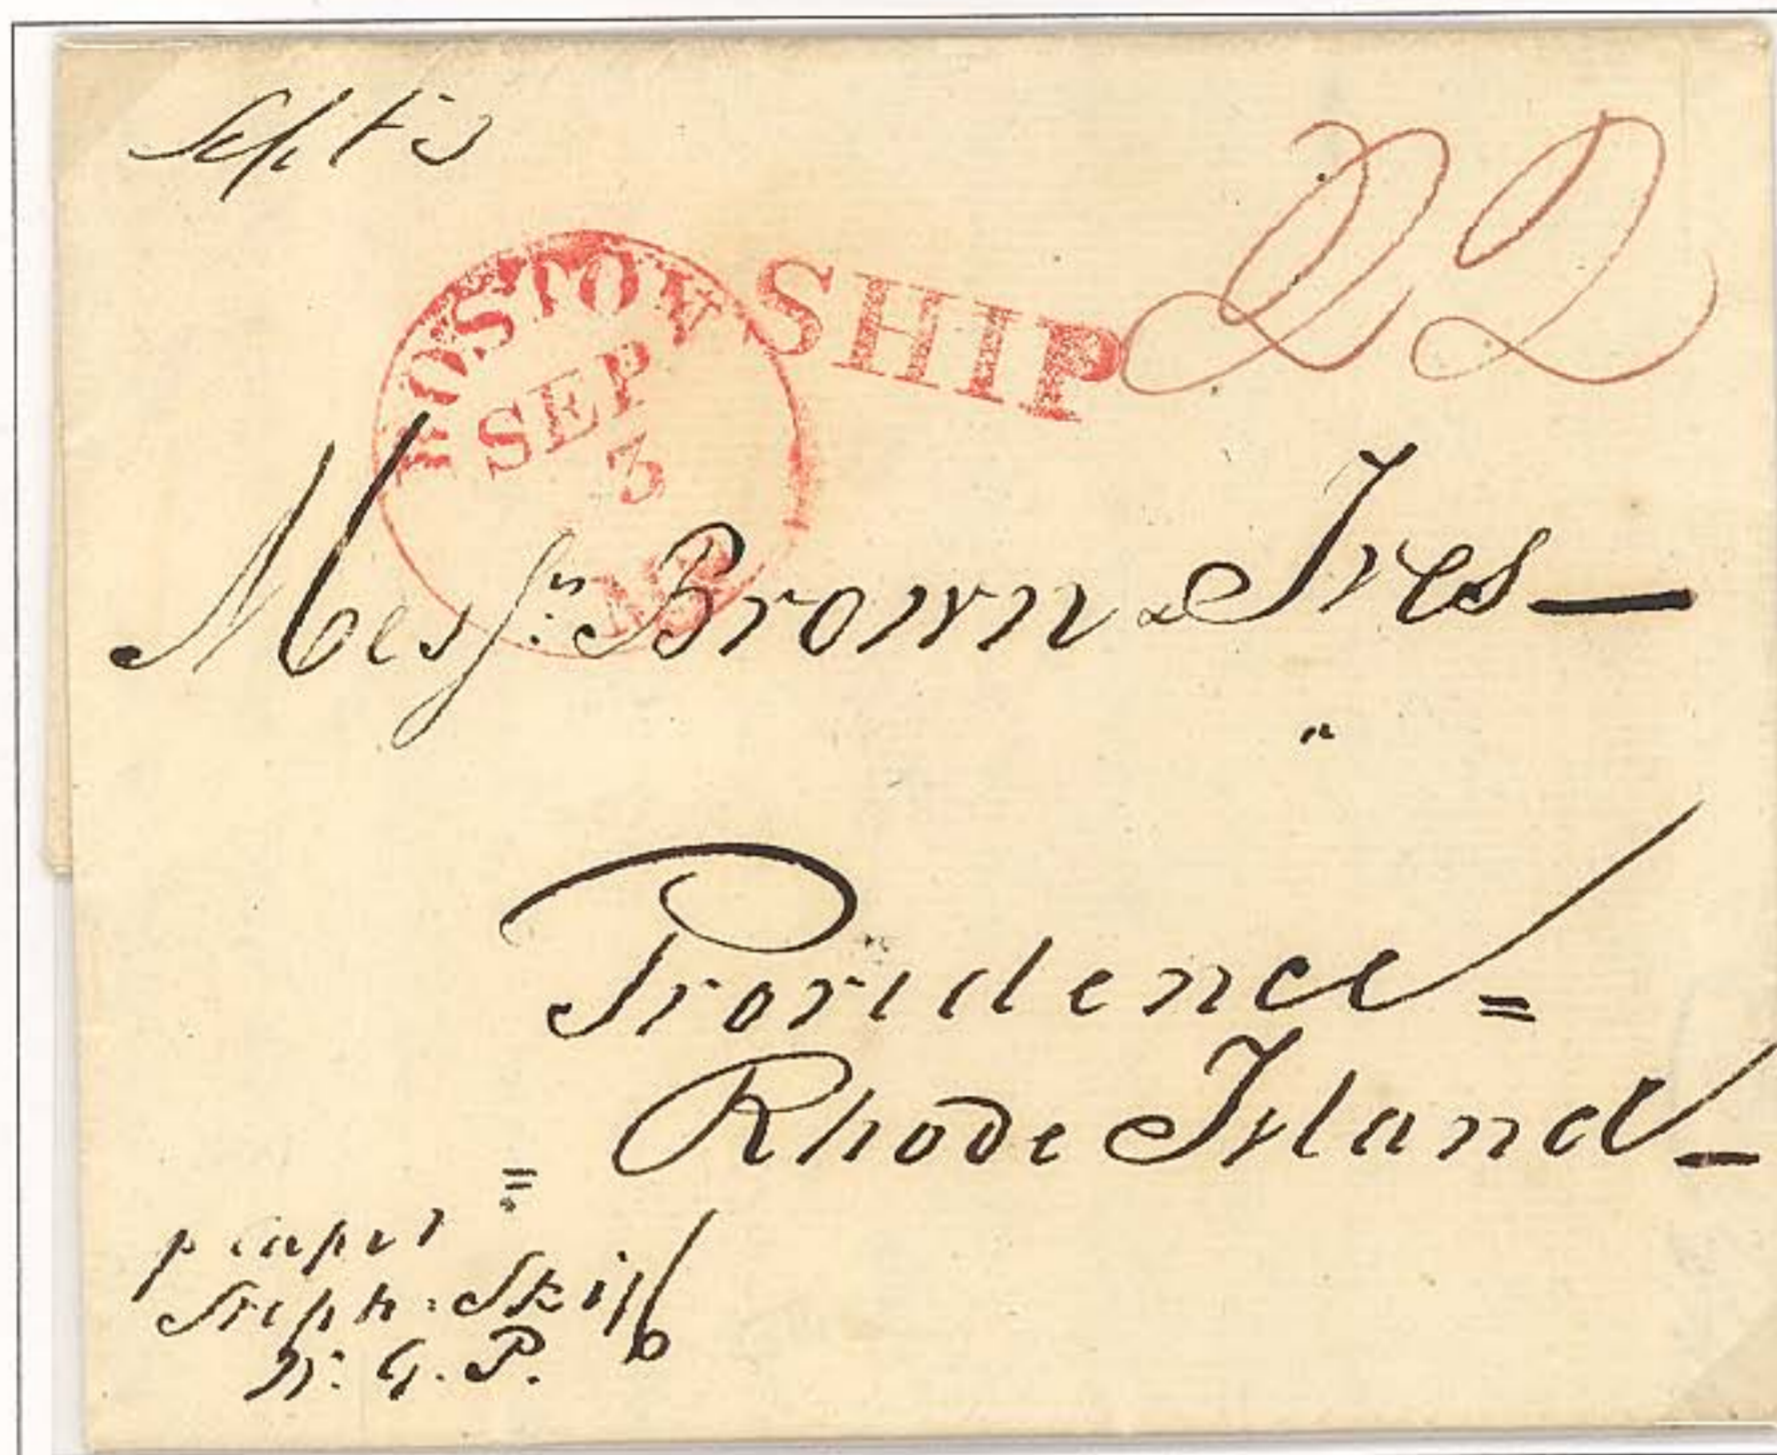 Sept 3
BOSTON
SEP
3
MS
SHIP
22
Messrs. Brown & Ives —
Providence =
Rhode Island —
p
Steph: Skiff
W. G. P.